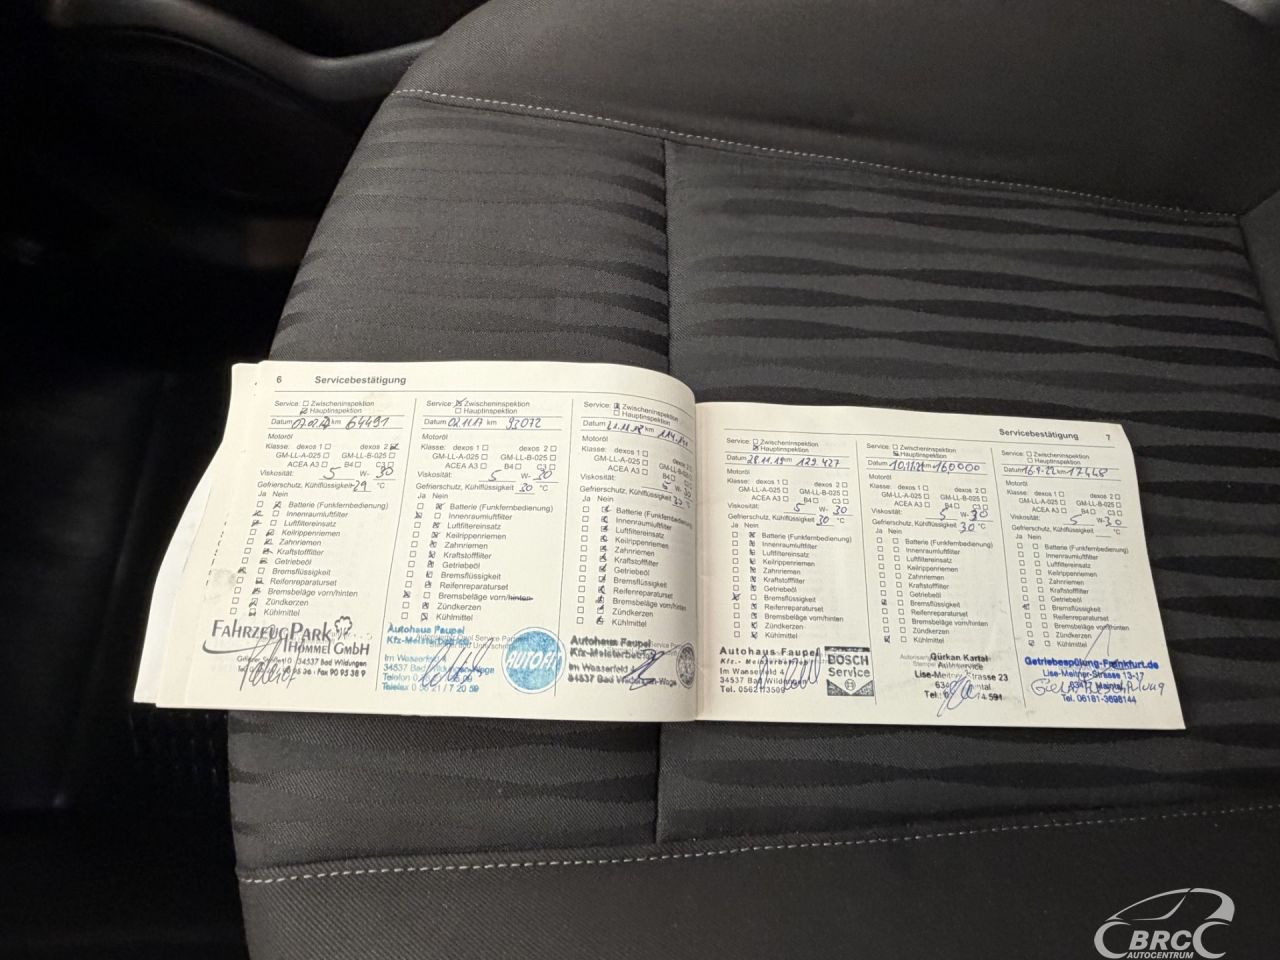 6 Servicebestätigung
Service: Zwischeninspektion
Hauptinspektion
Datum km 64491
Motoröl
Klasse: dexos 1 dexos 2
GM-LL-A-025 GM-LL-B-025
ACEA A3 B4 C3
Viskosität: 5 W- 30
Gefrierschutz, Kühlflüssigkeit °C
Ja Nein
Batterie (Funkfernbedienung)
Innenraumluftfilter
Luftfiltereinsatz
Keilrippenriemen
Zahnriemen
Kraftstofffilter
Getriebeöl
Bremsflüssigkeit
Reifenreparaturset
Bremsbeläge vorn/hinten
Zündkerzen
Kühlmittel
FAHRZEUGPARK
THOMMEL GMBH
34537 Bad Wildungen
Service: Zwischeninspektion
Hauptinspektion
Datum 02.11.17 km 93072
Motoröl
Klasse: dexos 1 dexos 2
GM-LL-A-025 GM-LL-B-025
ACEA A3 B4 C3
Viskosität: 5 W- 30
Gefrierschutz, Kühlflüssigkeit 30 °C
Ja Nein
Batterie (Funkfernbedienung)
Innenraumluftfilter
Luftfiltereinsatz
Keilrippenriemen
Zahnriemen
Kraftstofffilter
Getriebeöl
Bremsflüssigkeit
Reifenreparaturset
Bremsbeläge vorn/hinten
Zündkerzen
Kühlmittel
Autohaus Faupel
Kfz-Meisterbetrieb
Im Wasserfeld 4
34537 Bad Wildungen-Wega
Service: Zwischeninspektion
Hauptinspektion
Datum km
Motoröl
Klasse: dexos 1 dexos 2
GM-LL-A-025 GM-LL-B-025
ACEA A3 B4 C3
Viskosität: 5 W- 30
Gefrierschutz, Kühlflüssigkeit 30 °C
Ja Nein
Batterie (Funkfernbedienung)
Innenraumluftfilter
Luftfiltereinsatz
Keilrippenriemen
Zahnriemen
Kraftstofffilter
Getriebeöl
Bremsflüssigkeit
Reifenreparaturset
Bremsbeläge vorn/hinten
Zündkerzen
Kühlmittel
Autohaus Faupel
Kfz-Meisterbetrieb
Im Wasserfeld 4
34537 Bad Wildungen-Wega
Servicebestätigung 7
Service: Zwischeninspektion
Hauptinspektion
Datum 28.11.19 km 129.427
Motoröl
Klasse: dexos 1 dexos 2
GM-LL-A-025 GM-LL-B-025
ACEA A3 B4 C3
Viskosität: 5 W- 30
Gefrierschutz, Kühlflüssigkeit 30 °C
Ja Nein
Batterie (Funkfernbedienung)
Innenraumluftfilter
Luftfiltereinsatz
Keilrippenriemen
Zahnriemen
Kraftstofffilter
Getriebeöl
Bremsflüssigkeit
Reifenreparaturset
Bremsbeläge vorn/hinten
Zündkerzen
Kühlmittel
Autohaus Faupel
Kfz.- Meisterbetrieb
Im Wasserfeld 4
34537 Bad Wildungen
BOSCH
Service
Service: Zwischeninspektion
Hauptinspektion
Datum km 160000
Motoröl
Klasse: dexos 1 dexos 2
GM-LL-A-025 GM-LL-B-025
ACEA A3 B4 C3
Viskosität: 5 W- 30
Gefrierschutz, Kühlflüssigkeit 30 °C
Ja Nein
Batterie (Funkfernbedienung)
Innenraumluftfilter
Luftfiltereinsatz
Keilrippenriemen
Zahnriemen
Kraftstofffilter
Getriebeöl
Bremsflüssigkeit
Reifenreparaturset
Bremsbeläge vorn/hinten
Zündkerzen
Kühlmittel
Gürkan Kartal
Autoservice
Lise-Meitner-Strasse 23
Service: Zwischeninspektion
Hauptinspektion
Datum 16.9.22 km
Motoröl
Klasse: dexos 1 dexos 2
GM-LL-A-025 GM-LL-B-025
ACEA A3 B4 C3
Viskosität: 5 W- 30
Gefrierschutz, Kühlflüssigkeit °C
Ja Nein
Batterie (Funkfernbedienung)
Innenraumluftfilter
Luftfiltereinsatz
Keilrippenriemen
Zahnriemen
Kraftstofffilter
Getriebeöl
Bremsflüssigkeit
Reifenreparaturset
Bremsbeläge vorn/hinten
Zündkerzen
Kühlmittel
Getriebespülung-Frankfurt.de
Lise-Meitner-Strasse 13-17
63477 Maintal
Tel. 06181-3698144
BRC
AUTOCENTRUM